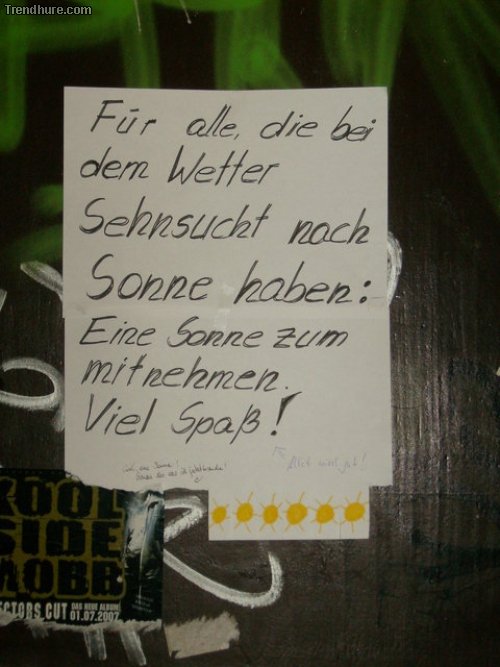 Trendhure.com
Für alle, die bei
dem Wetter
Sehnsucht nach
Sonne haben:
Eine Sonne zum
mitnehmen.
Viel Spaß!
eine Sonne!
KOOL
SIDE
MOBB
ECTORS CUT DAS NEUE ALBUM
01.07.2007